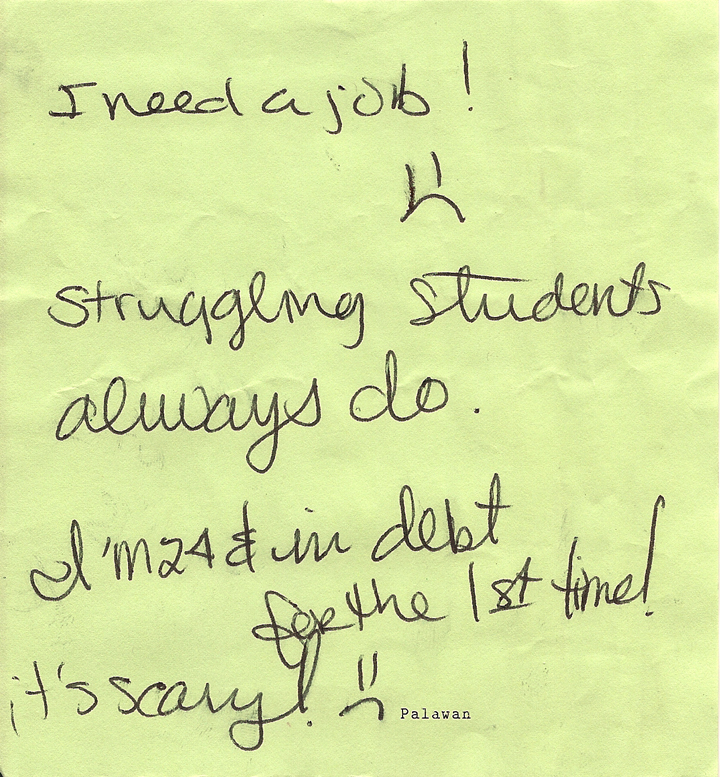 I need a job!
:(
struggling students
always do.
I'm 24 & in debt
for the 1st time!
it's scary! :(
Palawan